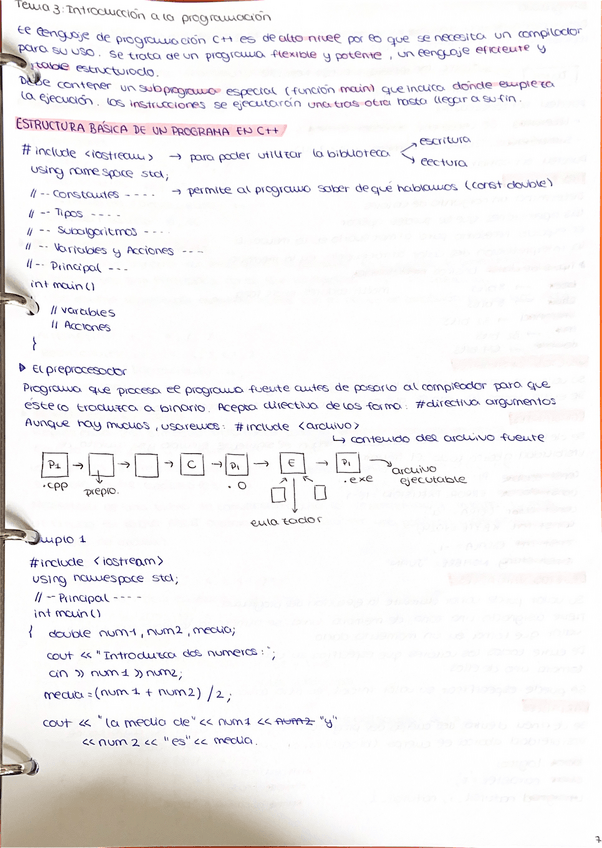 Tema 3: Introducción a la programación
El lenguaje de programación C++ es de alto nivel por lo que se necesita un compilador
para su uso. Se trata de un programa flexible y potente, un lenguaje eficiente y
estable estructurado.
Debe contener un subprograma especial (función main) que indica dónde empieza
la ejecución. Las instrucciones se ejecutarán una tras otra hasta llegar a su fin.
ESTRUCTURA BÁSICA DE UN PROGRAMA EN C++
# include <iostream> → para poder utilizar la biblioteca
escritura
lectura
using namespace std;
// -- Constantes ---- → permite al programa saber de qué hablamos (const double)
// -- Tipos ----
// -- Subalgoritmos ----
// -- Variables y Acciones ---
// -- Principal ---
int main()
// variables
// Acciones
}
▷ El preprocesador
Programa que procesa el programa fuente antes de pasarlo al compilador para que
éste lo traduzca a binario. Acepta directiva de las forma: #directiva argumentos
Aunque hay muchos, usaremos: #include <archivo>
↳ contenido del archivo fuente
P1 → → → C → P1 → E → P1 → archivo ejecutable
.cpp prepro. .O .exe
enlazador
Ejemplo 1
#include <iostream>
using namespace std;
// -- Principal ----
int main()
{ double num1, num2, media;
cout << "Introduzca dos numeros:";
cin >> num1 >> num2;
media = (num1 + num2) / 2;
cout << "la media de" << num1 << num2 "y"
<< num2 << "es" << media.
7